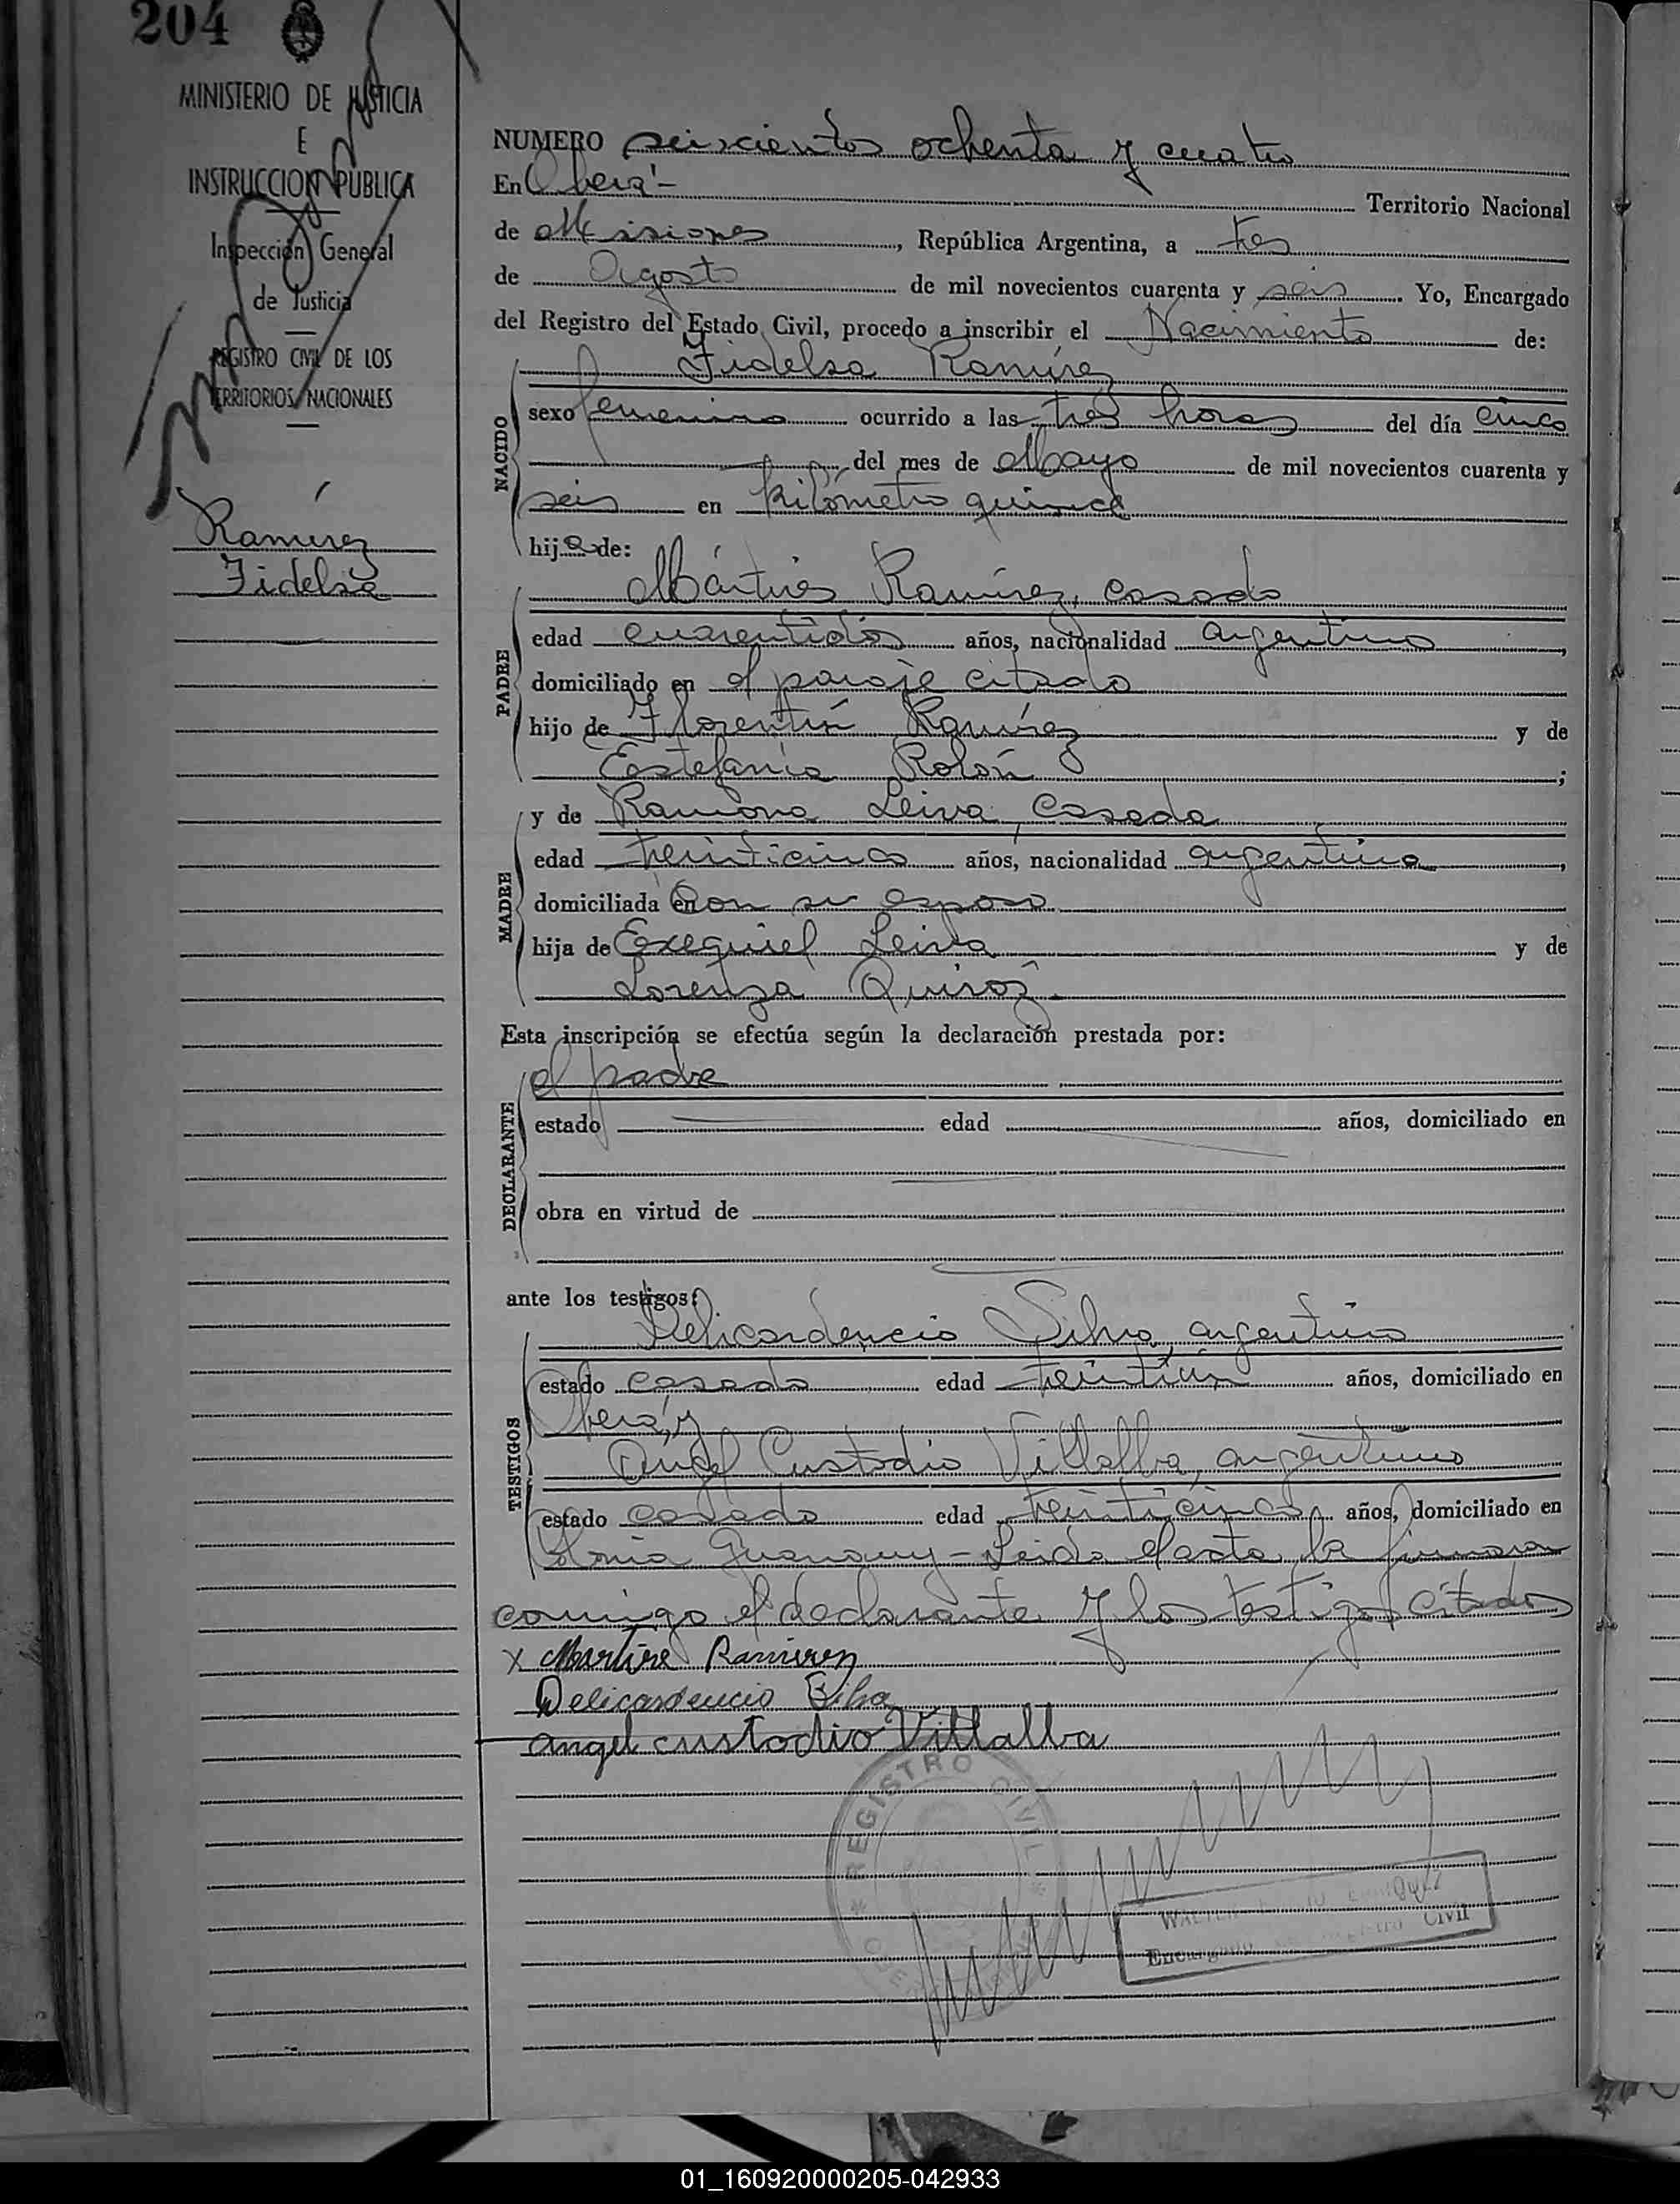 204
MINISTERIO DE JUSTICIA
E
INSTRUCCION PUBLICA
Inspección General
de Justicia
REGISTRO CIVIL DE LOS
TERRITORIOS NACIONALES
Ramírez
Fidelsa
NUMERO seiscientos ochenta y cuatro
En Oberá - Territorio Nacional
de Misiones, República Argentina, a tres
de Agosto de mil novecientos cuarenta y seis. Yo, Encargado
del Registro del Estado Civil, procedo a inscribir el Nacimiento de:
Fidelsa Ramírez
NACIDO
sexo femenino ocurrido a las tres horas del día cinco
del mes de Mayo de mil novecientos cuarenta y
seis en kilómetro quince
hija de:
PADRE
Mártires Ramírez, casado
edad cuarentidós años, nacionalidad argentino,
domiciliado en el paraje citado
hijo de Florentín Ramírez y de
Estefania Rolón;
MADRE
y de Ramona Leiva, casada
edad treinticinco años, nacionalidad argentina,
domiciliada en con su esposo
hija de Exequiel Leiva y de
Lorenza Quiroz.
Esta inscripción se efectúa según la declaración prestada por:
DECLARANTE
el padre
estado edad años, domiciliado en
obra en virtud de
ante los testigos:
TESTIGOS
Delicardencio Silva, argentino
estado casado edad treintiún años, domiciliado en
Oberá, y
Angel Custodio Villalba, argentino
estado casado edad treinticinco años, domiciliado en
Colonia Guarany - Leída el acta, la firmaron
comigo el declarante y los testigos citados
x Martire Ramirez
Delicardencio Silva
angel custodio Villalba
REGISTRO CIVIL
Encargado Civil
01_160920000205-042933